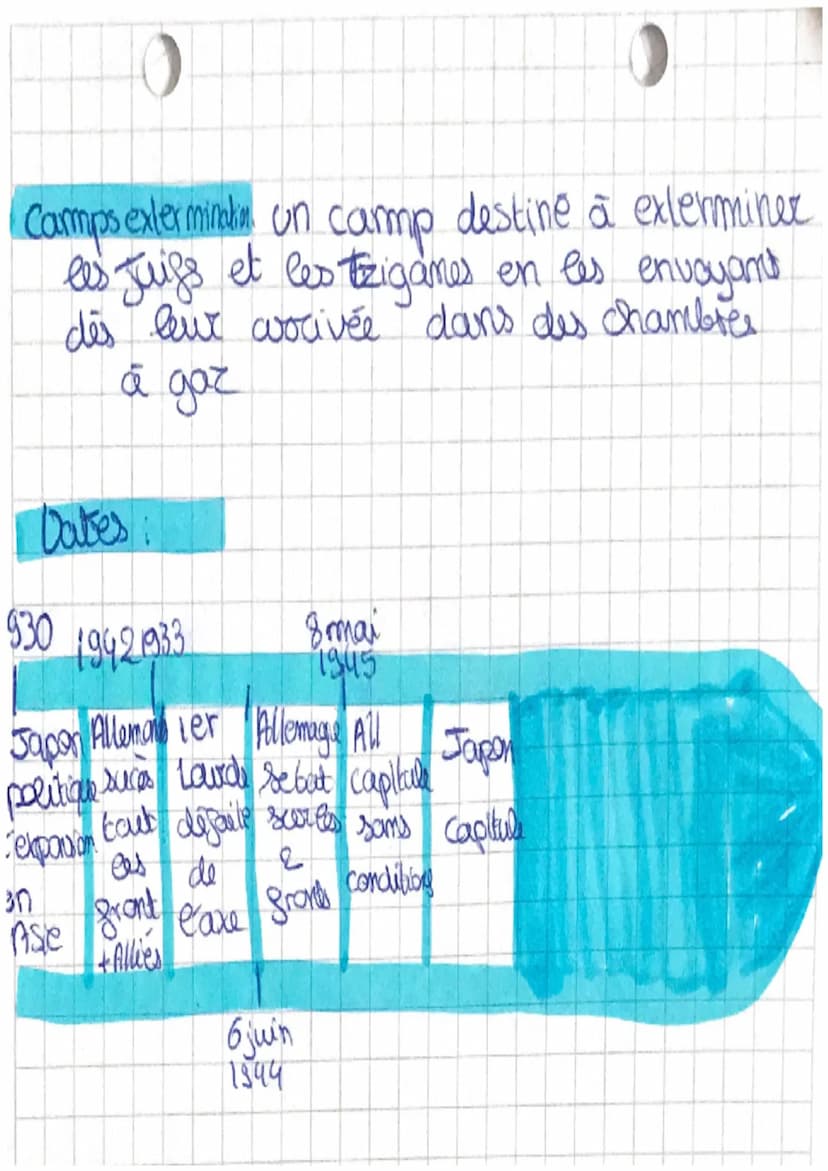 Camps extermination un camp destiné à exterminer
les Juifs et les tziganes en les envoyant
dès leur arrivée dans des chambres
à gaz
Dates :
930 1942 1933 8 mai
1945
Japon
politique
expansion
en
Asie
Allemand
succès
tout
les
front
+ Alliés
1er
Lourde
défaite
de
l'axe
Allemagne
se bat
sur les
2
fronts
All
capitule
sans
conditions
Japon
Capitule
6 juin
1944